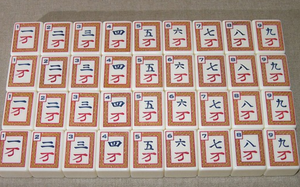 1 2 3 4 5 6 7 8 9
一 二 三 四 五 六 七 八 九
万 万 万 万 万 万 万 万 万
1 2 3 4 5 6 7 8 9
一 二 三 四 五 六 七 八 九
万 万 万 万 万 万 万 万 万
1 2 3 4 5 6 7 8 9
一 二 三 四 五 六 七 八 九
万 万 万 万 万 万 万 万 万
1 2 3 4 5 6 7 8 9
一 二 三 四 五 六 七 八 九
万 万 万 万 万 万 万 万 万